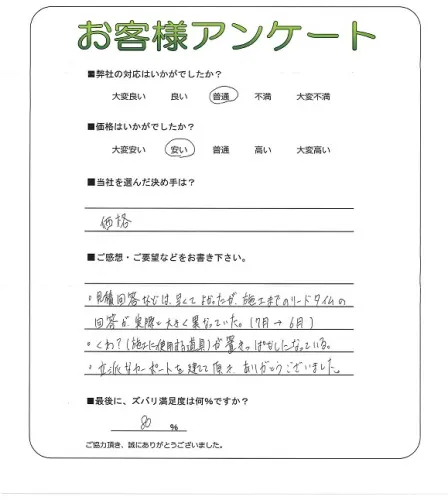 お客様アンケート
■弊社の対応はいかがでしたか?
大変良い 良い 普通 不満 大変不満
■価格はいかがでしたか?
大変安い 安い 普通 高い 大変高い
■当社を選んだ決め手は?
価格
■ご感想・ご要望などをお書き下さい。
・見積回答などは、早くてよかったが、施工までのリードタイムの
回答が実際と大きく異なっていた。(7月→6月)
・くわ?(施工に使用する道具)が置きっぱなしになっている。
・立派なカーポートを建てて頂き、ありがとうございました。
■最後に、ズバリ満足度は何%ですか?
80 %
ご協力頂き、誠にありがとうございました。